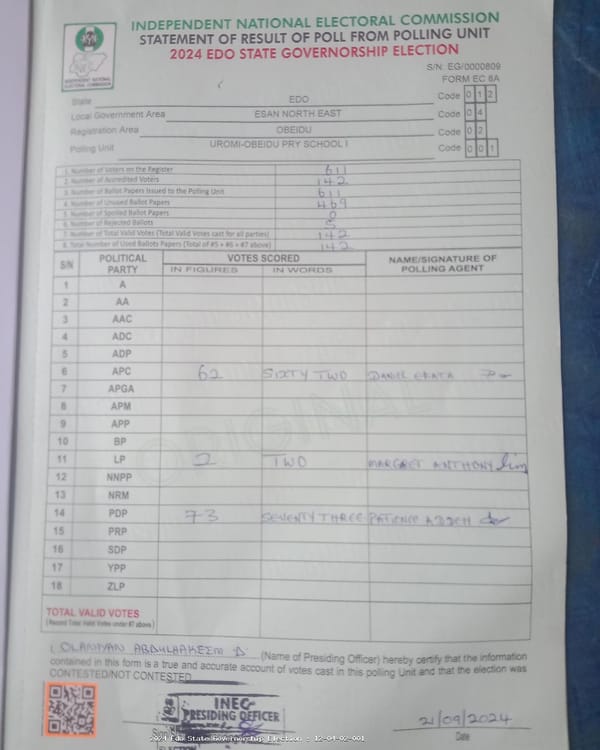 INDEPENDENT NATIONAL ELECTORAL COMMISSION
STATEMENT OF RESULT OF POLL FROM POLLING UNIT
2024 EDO STATE GOVERNORSHIP ELECTION
S/N. EG/0000809
FORM EC 8A
INDEPENDENT NATIONAL ELECTORAL COMMISSION
State EDO Code 0 1 2
Local Government Area ESAN NORTH EAST Code 0 4
Registration Area OBEIDU Code 0 2
Polling Unit UROMI-OBEIDU PRY SCHOOL I Code 0 0 1
1. Number of Voters on the Register 611
2. Number of Accredited Voters 142
3. Number of Ballot Papers Issued to the Polling Unit 611
4. Number of Unused Ballot Papers 469
5. Number of Spoiled Ballot Papers 0
6. Number of Rejected Ballots 5
7. Number of Total Valid Votes (Total Valid Votes cast for all parties) 142
8. Total Number of Used Ballots Papers (Total of #5 + #6 + #7 above) 142
S/N POLITICAL PARTY VOTES SCORED NAME/SIGNATURE OF POLLING AGENT
IN FIGURES IN WORDS
1 A
2 AA
3 AAC
4 ADC
5 ADP
6 APC 62 SIXTY TWO DANIEL ERATA
7 APGA
8 APM
9 APP
10 BP
11 LP 2 TWO MARGRET ANTHONY
12 NNPP
13 NRM
14 PDP 73 SEVENTY THREE PATIENCE
15 PRP
16 SDP
17 YPP
18 ZLP
TOTAL VALID VOTES
(Record Total Valid Votes under #7 above)
I, OLANIYAN ABDULHAKEEM D. (Name of Presiding Officer) hereby certify that the information
contained in this form is a true and accurate account of votes cast in this polling Unit and that the election was
CONTESTED/NOT CONTESTED
INEC
PRESIDING OFFICER
21/09/2024
Date
2024 Edo State Governorship Election : 12-04-02-001